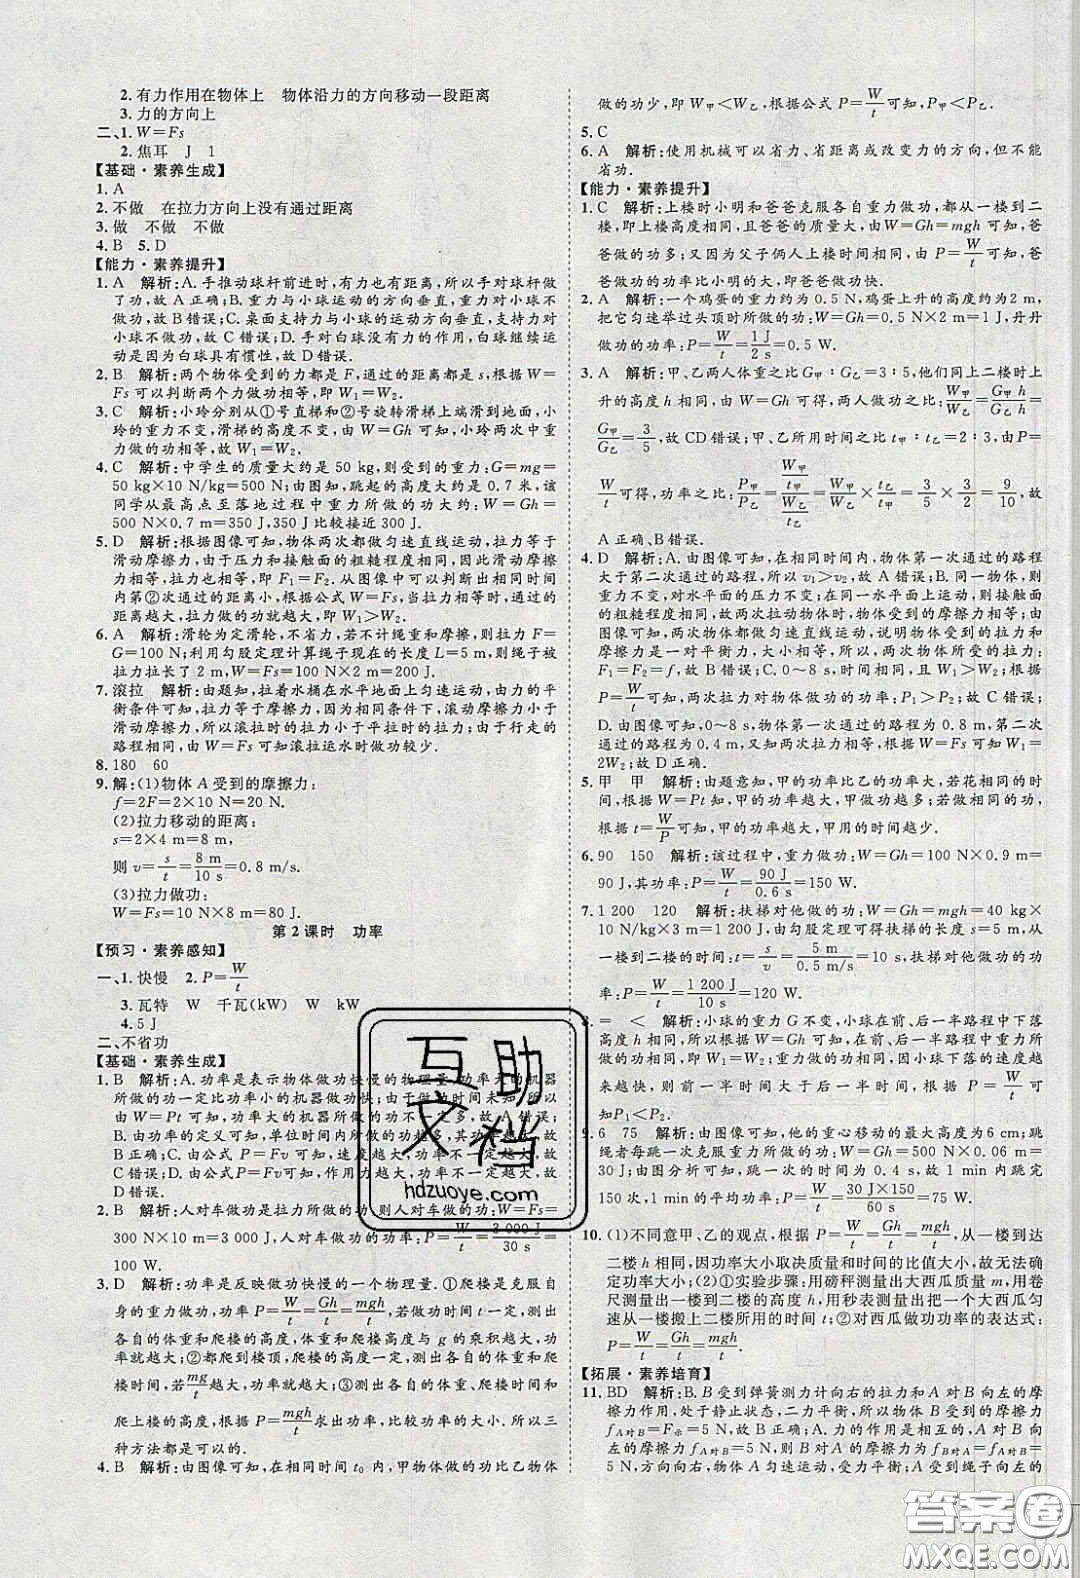 2. 有力作用在物体上 物体沿力的方向移动一段距离
3. 力的方向上
二、1. W=Fs
2. 焦耳 J 1
【基础·素养生成】
1. A
2. 不做 在拉力方向上没有通过距离
3. 做 不做 不做
4. B 5. D
【能力·素养提升】
1. A 解析:A. 手推动球杆前进时,有力也有距离,所以手对球杆做
了功,故 A 正确;B. 重力与小球运动的方向垂直,重力对小球不
做功,故 B 错误;C. 桌面支持力与小球的运动方向垂直,支持力对
小球不做功,故 C 错误;D. 手对白球没有力的作用,白球继续运
动是因为白球具有惯性,故 D 错误.
2. B 解析:两个物体受到的力都是 F,通过的距离都是 s,根据 W=
Fs 可以判断两个力做功相等,即 W₁=W₂.
3. C 解析:小玲分别从①号直梯和②号旋转滑梯上端滑到地面,小
玲的重力不变,滑梯的高度不变,由 W=Gh 可知,小玲两次中重
力做的功相等,故 C 正确.
4. C 解析:中学生的质量大约是 50 kg,则受到的重力:G=mg=
50 kg×10 N/kg=500 N;由图知,跳起的高度大约是 0.7 米,该
同学从最高点至落地过程中重力所做的功大约:W=Gh=
500 N×0.7 m=350 J,350 J 比较接近 300 J.
5. D 解析:根据图像可知,物体两次都做匀速直线运动,拉力等于
滑动摩擦力,由于压力和接触面的粗糙程度相同,因此滑动摩擦
力相等,拉力也相等,即 F₁=F₂. 从图像中可以判断出相同时间
内第②次通过的距离小,根据公式 W=Fs,当拉力相等时,通过的
距离越大,拉力做的功就越大,即 W₁>W₂.
6. A 解析:滑轮为定滑轮,不省力,若不计绳重和摩擦,则拉力 F=
G=100 N;利用勾股定理计算绳子现在的长度 L=5 m,则绳子被
拉力拉长了 2 m,W=Fs=100 N×2 m=200 J.
7. 滚拉 解析:由题知,拉着水桶在水平地面上匀速运动,由力的平
衡条件可知,拉力等于摩擦力,因为相同条件下,滚动摩擦力小于
滑动摩擦力,所以滚拉时的拉力小于平拉时的拉力;由于行走的
路程相同,由 W=Fs 可知滚拉运水时做功较少.
8. 180 60
9. 解:(1)物体 A 受到的摩擦力:
f=2F=2×10 N=20 N.
(2)拉力移动的距离:
s=2×4 m=8 m,
则 v=s/t=8 m/10 s=0.8 m/s.
(3)拉力做功:
W=Fs=10 N×8 m=80 J.
第 2 课时 功率
【预习·素养感知】
一、1. 快慢 2. P=W/t
3. 瓦特 W 千瓦(kW) W kW
4. 5 J
二、不省功
【基础·素养生成】
1. B 解析:A. 功率是表示物体做功快慢的物理量,功率大的机器
所做的功一定比功率小的机器做功快;由于做功时间未知,所以
由 W=Pt 可知,功率大的机器所做的功不一定多,故 A 错误;
B. 由功率的定义可知,单位时间内做功越多,其功率一定越大,故
B 正确;C. 由公式 P=Fv 可知,速度越大,功率不一定越大,故
C 错误;D. 由公式 P=Fv 可知,作用力越大,功率不一定越大,故
D 错误.
2. B 解析:人对车做功是力持续的功,则人对车做的功:W=Fs=
300 N×10 m=3 000 J,人对车做功的功率:P=W/t=3 000 J/30 s=
100 W.
3. D 解析:功率是反映做功快慢的一个物理量.①爬楼是克服自
身的重力做功,功率 P=W/t=Gh/t=mgh/t,若做功时间 t 一定,测出
各自的体重和爬楼的高度,体重和爬楼高度与 g 的乘积越大,功
率越大;②都爬到楼顶,爬楼的高度一定,测出各自的体重、爬楼
时间,若 mg/t 越大,功率越大;③测出各自的体重、爬楼时间和
爬上楼的高度,根据 P=mgh/t 求出功率,比较功率大小. 所以三
种方法都是可以的.
4. B 解析:由图像可知,在相同时间 t₀ 内,甲物体做的功比乙物体
做的功少,即 W甲<W乙,根据公式 P=W/t 可知,P甲<P乙.
5. C
6. A 解析:使用机械可以省力、省距离或改变力的方向,但不能
省功.
【能力·素养提升】
1. C 解析:上楼时小明和爸爸克服各自重力做功,从一楼到二
楼,即上楼高度相同,且爸爸的质量大,由 W=Gh=mgh 可知,爸
爸做的功多;又因为父子俩人上楼时间相同,由 P=W/t 可知,爸
爸做功的功率比小明的大,即爸爸做功快.
2. A 解析:一个鸡蛋的重力约为 0.5 N,鸡蛋上升的高度约为 2 m,
把它匀速举过头顶时所做的功:W=Gh=0.5 N×2 m=1 J,丹丹
做功的功率:P=W/t=1 J/2 s=0.5 W.
3. A 解析:甲、乙两人体重之比 G甲∶G乙=3∶5,他们同上二楼时上
升的高度 h 相同,由 W=Gh 可得,两人做功之比:W甲/W乙=G甲h/G乙h=
G甲/G乙=3/5,故 CD 错误;甲、乙所用时间之比 t甲∶t乙=2∶3,由 P=
W/t 可得,功率之比:P甲/P乙=(W甲/t甲)/(W乙/t乙)=W甲/W乙×t乙/t甲=3/5×3/2=9/10,故
A 正确、B 错误.
4. D 解析:A. 由图像可知,在相同时间内,物体第一次通过的路程
大于第二次通过的路程,所以 v₁>v₂,故 A 错误;B. 同一物体的
重力不变,对水平面的压力不变;在同一水平面上运动,接触面
的粗糙程度相同,故两次拉动物体时,物体受到的摩擦力相等;由
图像可知,两次物体都做匀速直线运动,说明物体受到的拉力和
摩擦力是一对平衡力,大小相等,所以,两次物体所受的拉力:
F₁=F₂=f,故 B 错误;C. 0~8 s 的过程中,且 W₁>W₂,根据
P=W/t 可知,两次拉力对物体做功的功率:P₁>P₂,故 C 错误;
D. 由图像可知,0~8 s,物体第一次通过的路程为 0.8 m,第二次
通过的路程为 0.4 m,又知两次拉力相等,根据 W=Fs 可知 W₁=
2W₂;故 D 正确.
5. 甲 甲 解析:由题意知,甲的功率比乙的功率大,若花相同的时
间,根据 W=Pt 知,甲的功率越大,甲做功越多;若做相同的功,
根据 t=W/P 可知,甲的功率越大,甲用的时间越少.
6. 90 150 解析:该过程中,重力做功:W=Gh=100 N×0.9 m=
90 J,其功率:P=W/t=90 J/0.6 s=150 W.
7. 1 200 120 解析:扶梯对他做的功:W=Gh=mgh=40 kg
×10 N/kg×3 m=1 200 J,由勾股定理可得扶梯的长度 s=5 m,从
一楼到二楼的时间:t=s/v=5 m/0.5 m/s=10 s,扶梯对他做功的功
率:P=W/t=1 200 J/10 s=120 W.
8. = < 解析:小球的重力 G 不变,小球在前、后一半路程中下落
高度 h 相同,由 W=Gh 可知,小球在前、后一半路程中重力做功
关系是 W₁=W₂;重力做功不变,因小球下落的速度越
来越快,则前一半时间大于后一半时间,根据 P=W/t 可
知 P₁<P₂.
9. 6 75 解析:由图像可知,他的重心移动的最大高度为 6 cm;跳
绳者每跳一次克服重力所做的功:W=Gh=500 N×0.06 m=
30 J;由图分析可知,跳一次的时间为 0.4 s,故 1 min 内跳完
150 次,1 min 的平均功率:P=W/t=30 J×150/60 s=75 W.
10. (1)不同意甲、乙的观点,根据 P=W/t=Gh/t=mgh/t,从一楼到达
二楼 h 相同,因功率大小取决质量和时间的比值大小,故无法确定
功率大小;(2)①实验步骤:用磅秤测量出大西瓜质量 m,用卷
尺测量出一楼到二楼的高度 h,用秒表测量出把一个大西瓜匀
速从一楼搬上二楼所用的时间 t;②对西瓜做功功率的表达式:
P=W/t=Gh/t=mgh/t.
【拓展·素养培育】
11. BD 解析:B. B 受到弹簧测力计向右的拉力和 A 对 B 向左的摩
擦力作用,处于静止状态,二力平衡,所以物体 B 受到的摩擦力
fA对B=F示=5 N,故 B 正确;A. 力的作用是相互的,A 对 B 向
左的摩擦力 fA对B=5 N,则 B 对 A 的摩擦力 fB对A=fA对B=
5 N,方向向右,物体 A 匀速运动,受力平衡;A受到绳子向左的
互助文档
hdzuoye.com
答案圈
MXQE.COM